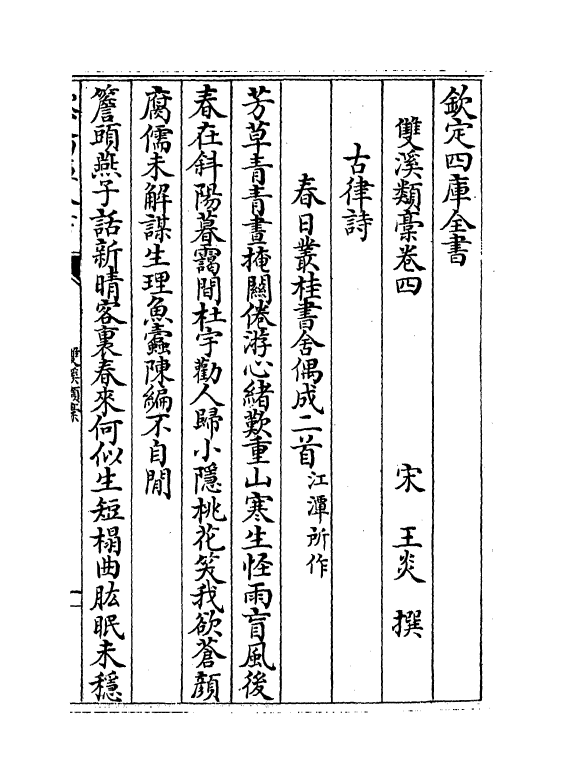 欽定四庫全書
雙溪類藁卷四　宋　王炎　撰
古律詩
春日叢桂書舍偶成二首江潭所作
芳草青青晝掩關倦游心緒歎重山寒生怪雨盲風後
春在斜陽暮靄間杜宇勸人歸小隱桃花笑我欲蒼顔
腐儒未解謀生理魚蠹陳編不自閒
簷頭燕子話新晴客裏春來何似生短榻曲肱眠未穩
雙溪類藁
一